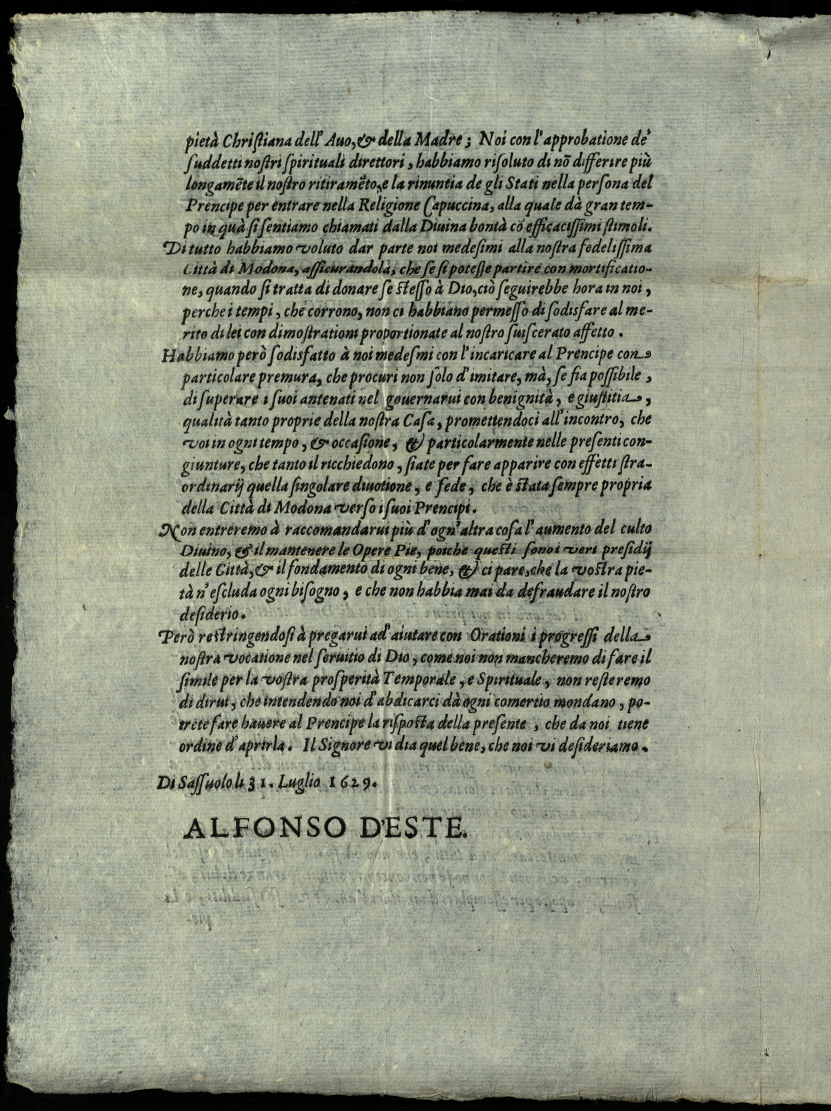 pietà Christiana dell' Auo, & della Madre; Noi con l'approbatione de'
suddetti nostri spirituali direttori, habbiamo risoluto di nõ differire più
longamẽte il nostro ritiramẽto, e la rinuntia de gli Stati nella persona del
Prencipe per entrare nella Religione Capuccina, alla quale dà gran tem-
po in quà si sentiamo chiamati dalla Diuina bontà cõ efficacissimi stimoli.
Di tutto habbiamo voluto dar parte noi medesimi alla nostra fedelissima
Città di Modona, assicurandola, che se si potesse partire con mortificatio-
ne, quando si tratta di donare se stesso à Dio, ciò seguirebbe hora in noi,
perche i tempi, che corrono, non ci habbiano permesso di sodisfare al me-
rito di lei con dimostrationi proportionate al nostro suiscerato affetto.
Habbiamo però sodisfatto à noi medesmi con l'incaricare al Prencipe con
particolare premura, che procuri non solo d'imitare, mà, se fia possibile,
di superare i suoi antenati nel gouernarui con benignità, e giustitia,
qualità tanto proprie della nostra Casa, promettendoci all'incontro, che
voi in ogni tempo, & occasione, & particolarmente nelle presenti con-
giunture, che tanto il ricchiedono, siate per fare apparire con effetti stra-
ordinarij quella singolare diuotione, e fede, che è stata sempre propria
della Città di Modona verso i suoi Prencipi.
Non entreremo à raccomandarui più d'ogn'altra cosa l'aumento del culto
Diuino, & il mantenere le Opere Pie, poiche questi sono i veri presidij
delle Città, & il fondamento di ogni bene, & ci pare, che la vostra pie-
tà n'escluda ogni bisogno, e che non habbia mai da defraudare il nostro
desiderio.
Però restringendosi à pregarui ad'aiutare con Orationi i progressi della
nostra vocatione nel seruitio di Dio, come noi non mancheremo di fare il
simile per la vostra prosperità Temporale, e Spirituale, non resteremo
di dirui, che intendendo noi d'abdicarci dà ogni comertio mondano, po-
trete fare hauere al Prencipe la risposta della presente, che da noi tiene
ordine d'aprirla. Il Signore vi dia quel bene, che noi vi desideriamo.
Di Sassuolo li 31. Luglio 1629.
ALFONSO D'ESTE.